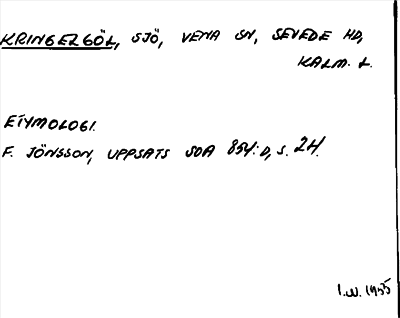 KRINGELGÖL, SJÖ, VENA SN, SEVEDE HD,
KALM. L.
ETYMOLOGI.
F. JÖNSSON, UPPSATS SOA 854:D, S. 24.
1955